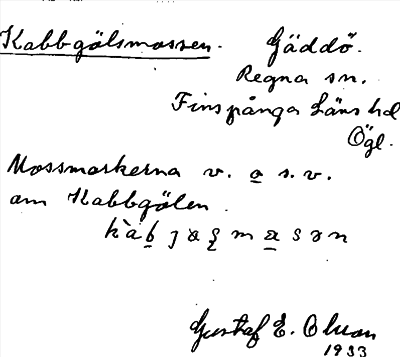 Kabbgölsmossen. Gäddö.
Regna sn.
Finspånga läns hd
Ögl.
Mossmarkerna v. o s.v.
om Kabbgölen.
Gustaf E. Olsson
1933